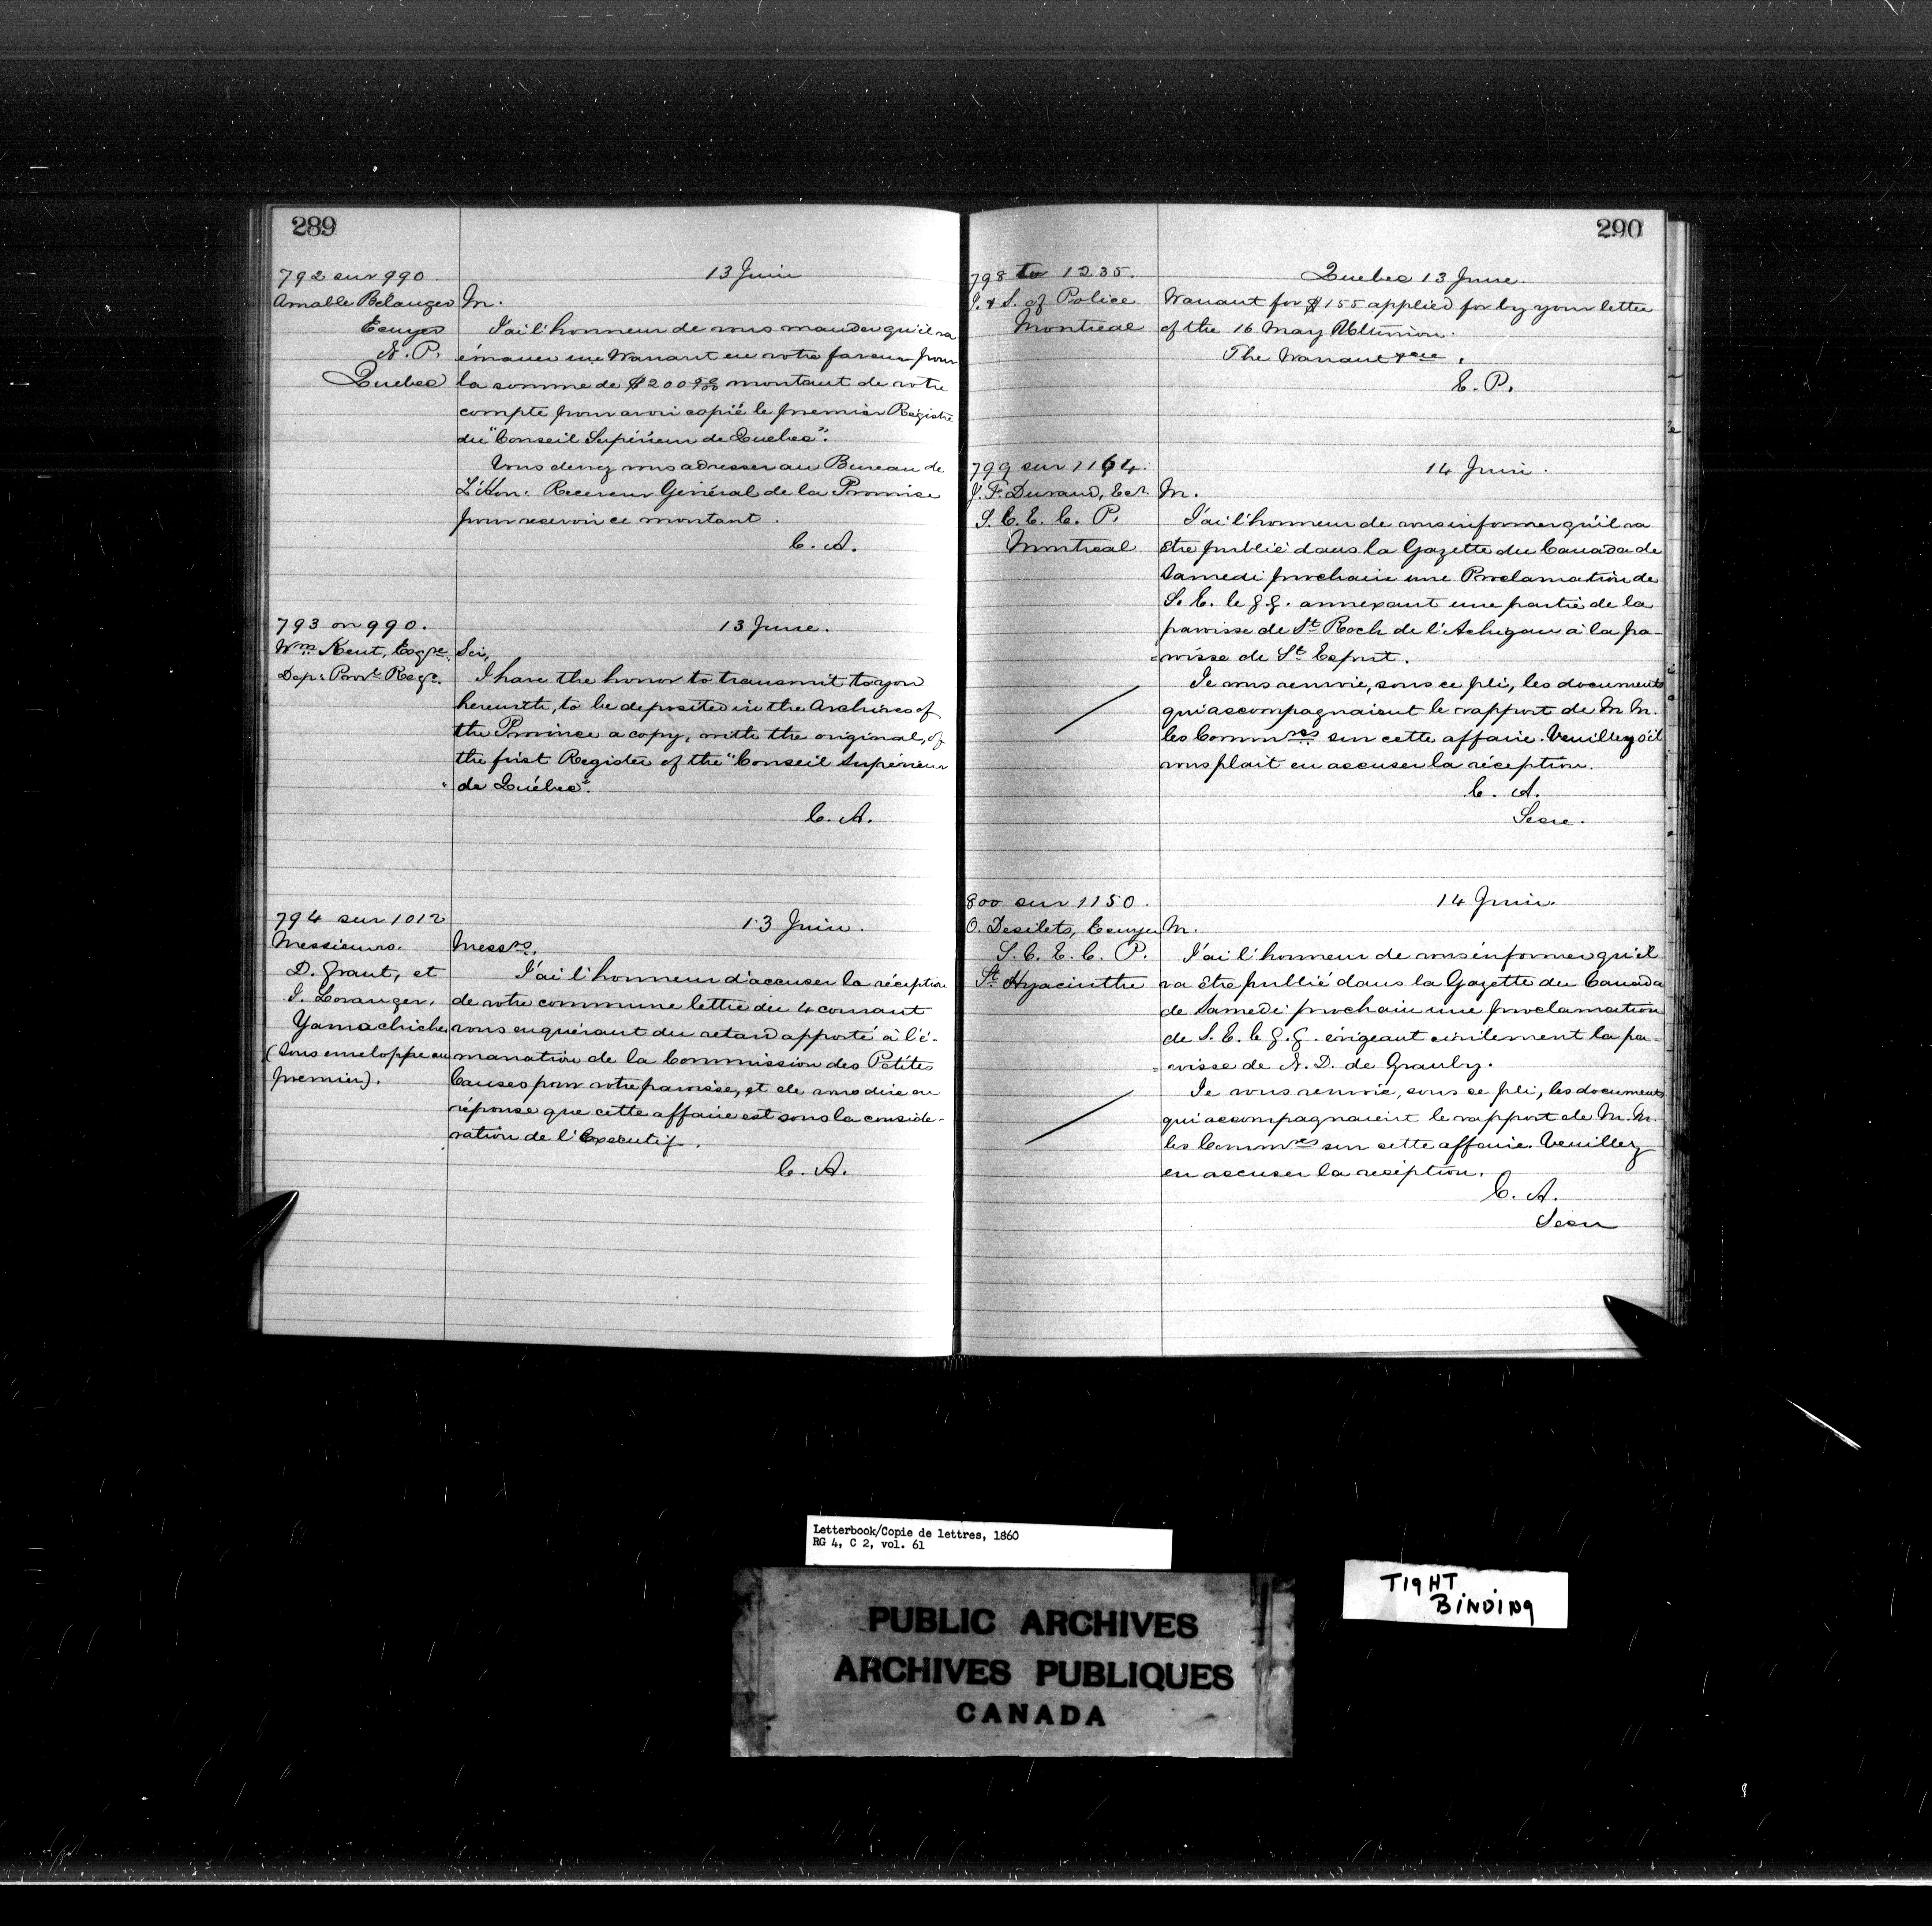 289
792 sur 990.
13 Juin
Amable Bélanger
Ecuyer
N. P.
Quebec
M.
J'ai l'honneur de vous mander qu'il va
émaner une Warrant en votre faveur pour
la somme de $200 montant de votre
compte pour avoir copié le premier Régistre
du "Conseil Supérieur de Quebec".
Vous devez vous adresser au Bureau de
L'Hon. Receveur Général de la Province
pour recevoir ce montant.
C. A.
793 on 990.
13 June.
Wm. Kent, Esqre.
Dep: Provl. Regr.
Sir,
I have the honor to transmit to you
herewith, to be deposited in the Archives of
the Province a copy, with the original, of
the first Register of the "Conseil Supérieur
de Québec".
C. A.
794 sur 1012
13 Juin.
Messieurs.
D. Grant, et
J. Loranger.
Yamachiche
(Sous enveloppe au
premier).
Messrs.
J'ai l'honneur d'accuser la réception
de votre commune lettre du 4 courant
vous enquérant du retard apporté à l'é-
manation de la Commission des Petites
Causes pour votre paroisse, et de vous dire en
réponse que cette affaire est sous la considé-
ration de l'Exécutif.
C. A.
290
798 to 1235.
Quebec 13 June.
I. & S. of Police
Montreal
Warrant for $155 applied for by your letter
of the 16 May Ultimio.
The Warrant
E. P.
799 sur 1164.
14 Juin.
J. F. Durand, Ecr.
S. C. E. C. P.
Montreal
M.
J'ai l'honneur de vous informer qu'il va
être publié dans la Gazette du Canada de
Samedi prochain une Proclamation de
S. E. le g. g. annexant une partie de la
paroisse de St. Roch de l'Achigan à la pa-
roisse de St. Esprit.
Je vous renvoie, sous ce pli, les documents
qui accompagnaient le rapport de M. M.
les Commres sur cette affaire. Veuillez s'il
vous plait en accuser la réception.
C. A.
Secre.
800 sur 1150.
14 Juin.
O. Desilets, Ecuyer
S. C. E. C. P.
St. Hyacinthe
M.
J'ai l'honneur de vous informer qu'il
va être publié dans la Gazette du Canada
de Samedi prochain une proclamation
de S. E. le g. g. érigeant civilement la pa-
roisse de N. D. de Granby.
Je vous renvoie, sous ce pli, les documents
qui accompagnaient le rapport de M. M.
les Commres sur cette affaire. Veuillez
en accuser la réception.
C. A.
Secre
Letterbook/Copie de lettres, 1860
RG 4, C 2, vol. 61
PUBLIC ARCHIVES
ARCHIVES PUBLIQUES
CANADA
TIGHT
BINDING